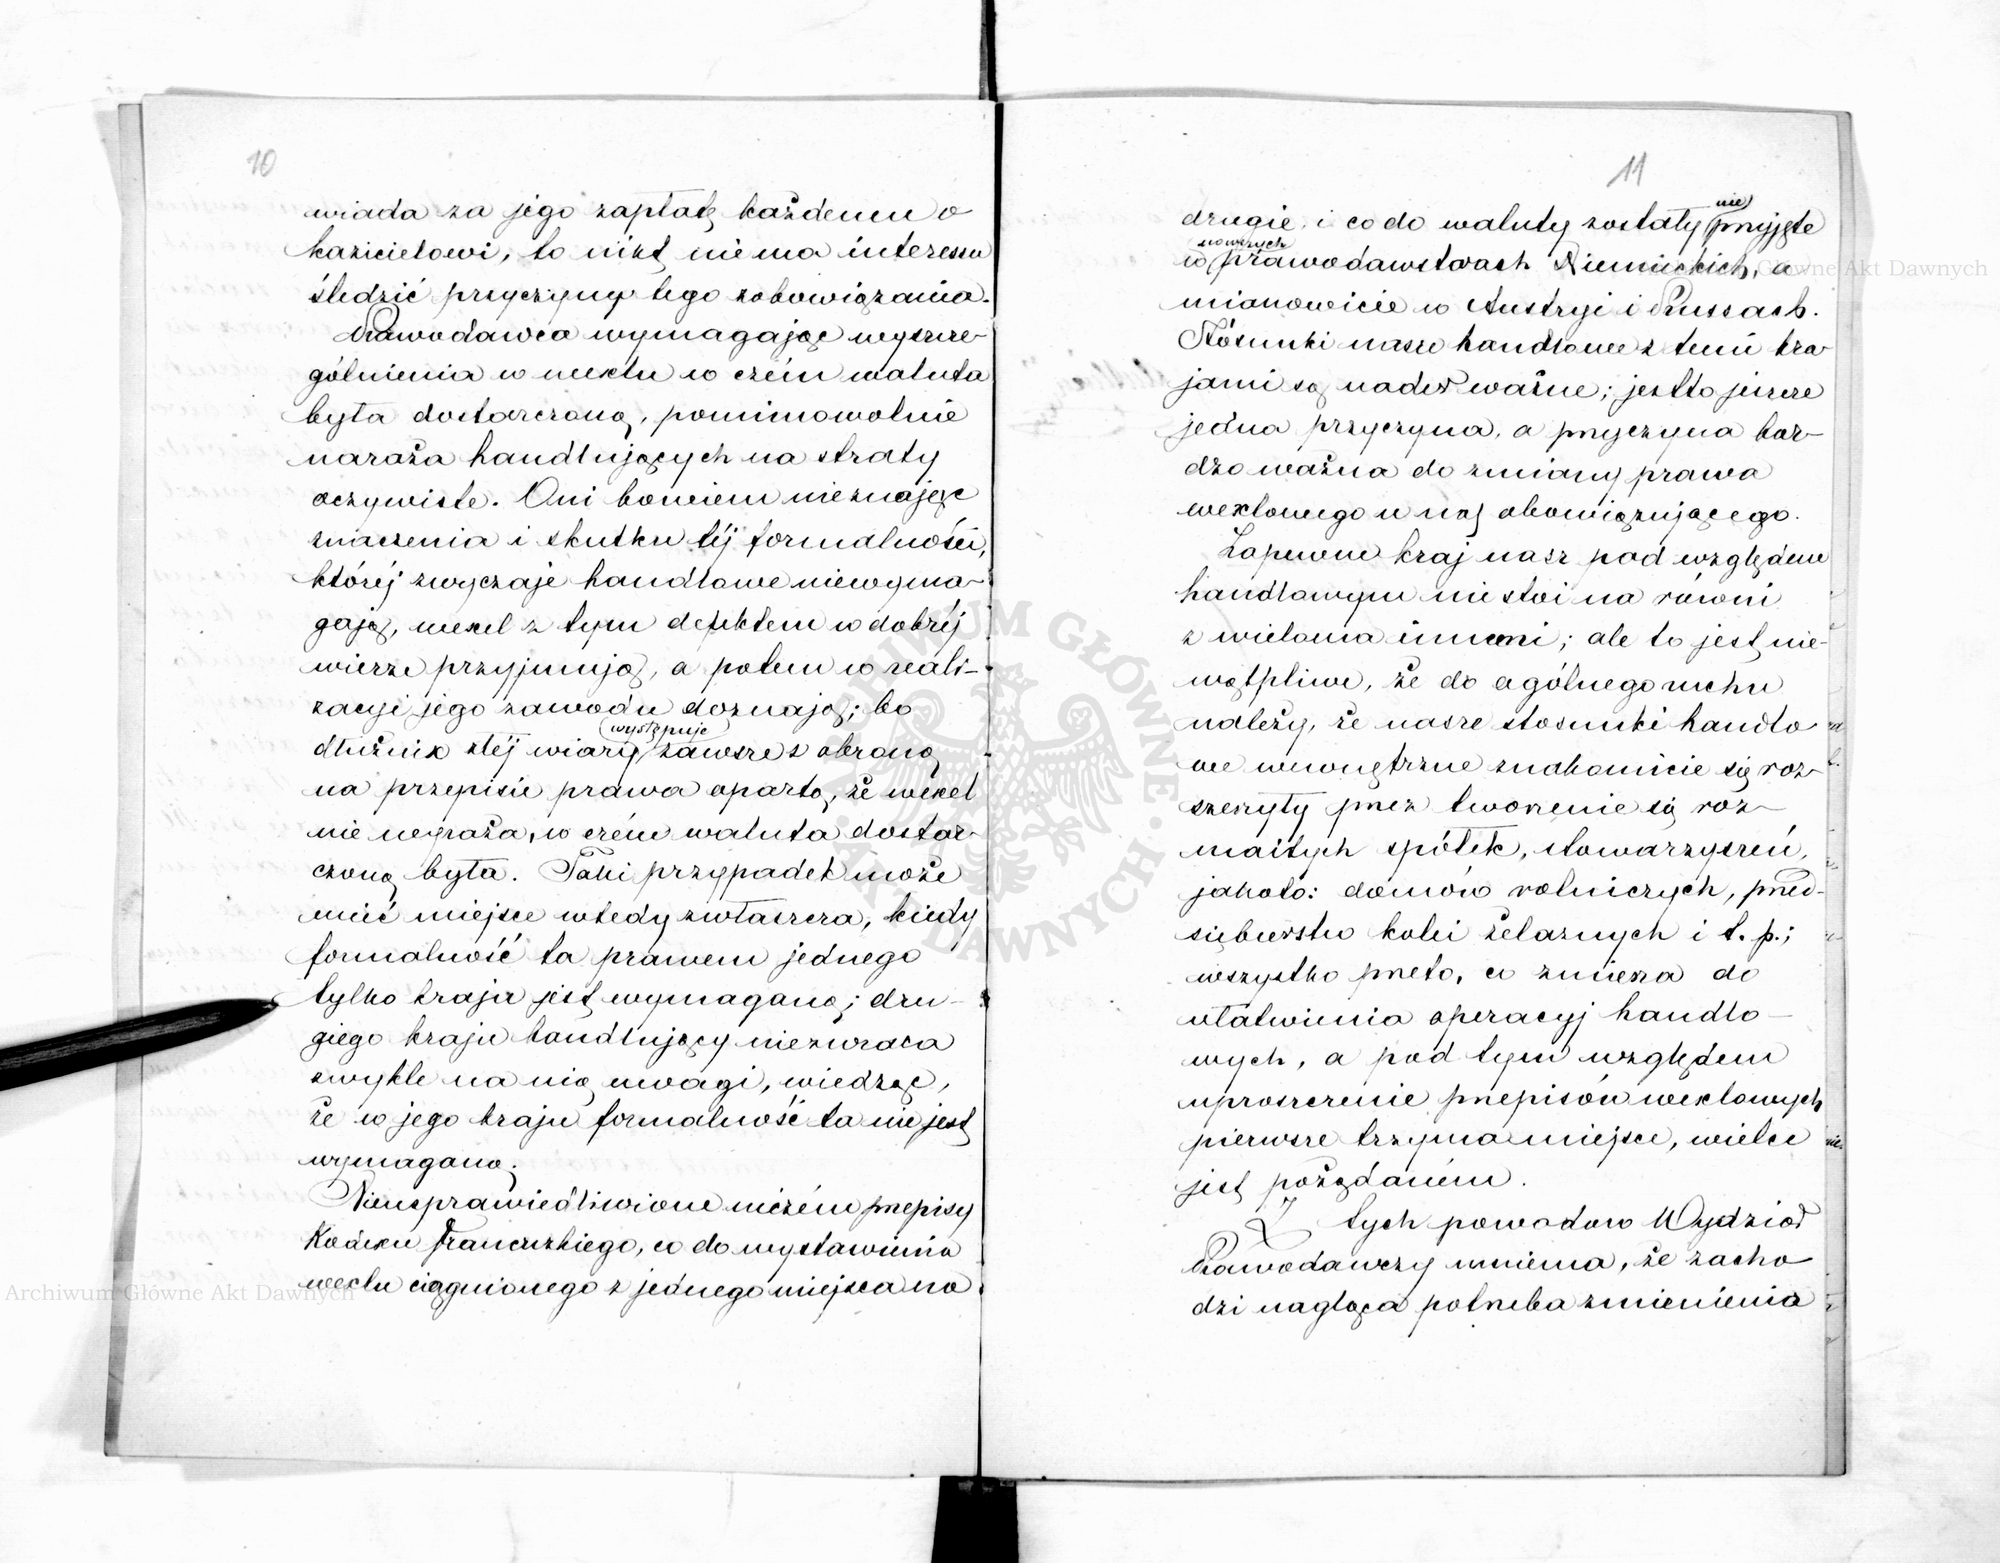 10
wiada za jego zapłatę każdemu o
kazicielowi, to nikt niema interessu
śledzić przyczyny tego zobowiązania.
Prawodawca wymagając wyszcze-
gólnienia w wexlu w czém waluta
była dostarczoną, pomimowolnie
naraża handlujących na straty
oczywiste. Oni bowiem nieznając
znaczenia i skutku téj formalności,
któréj zwyczaje handlowe niewyma-
gają, wexel z tym defektem w dobréj
wierze przyjmują, a potem w reali-
zacyi jego zawodu doznają; bo
dłużnik złéj wiary występuje zawsze z obroną
na przepisie prawa opartą, że wexel
nie wyraża, w czém waluta dostar-
czoną była. Taki przypadek może
mieć miejsce wtedy zwłaszcza, kiedy
formalność ta prawem jednego
tylko kraju jest wymaganą; dru-
giego kraju handlujący niezwraca
zwykle na nią uwagi, wiedząc,
że w jego kraju formalność ta nie jest
wymaganą.
Nieusprawiedliwione niczém przepisy
Kodexu Francuzkiego, co do wystawienia
wexlu ciągnionego z jednego miejsca na
11
drugie i co do waluty zostały nie przyjęte
w nowszych prawodawstwach Niemieckich, a
mianowicie w Austryi i Prussach.
Stósunki nasze handlowe z temi kra
jami są nader ważne; jestto jeszcze
jedna przyczyna, a przyczyna bar-
dzo ważna do zmiany prawa
wexlowego u nas obowiązującego.
Zapewne kraj nasz pod względem
handlowym nie stoi na równi
z wieloma innemi; ale to jest nie-
wątpliwe, że do ogólnego ruchu
należy, że nasze stosunki handlo
we wewnętrzne znakomicie się roz-
szerzyły przez tworzenie się roz-
maitych spółek, stowarzyszeń,
jakoto: domów rolniczych, przed-
siębierstw kolei żelaznych i t. p.;
wszystko przeto, co zmierza do
ułatwienia operacyj handlo-
wych, a pod tym względem
uproszczenie przepisów wexlowych
pierwsze trzyma miejsce, wielce
jest pożądaném.
Z tych powodow Wydział
Prawodawczy mniema, że zacho
dzi nagląca potrzeba zmienienia
Archiwum Główne Akt Dawnych
Główne Akt Dawnych
ARCHIWUM GŁÓWNE · AKT DAWNYCH ·